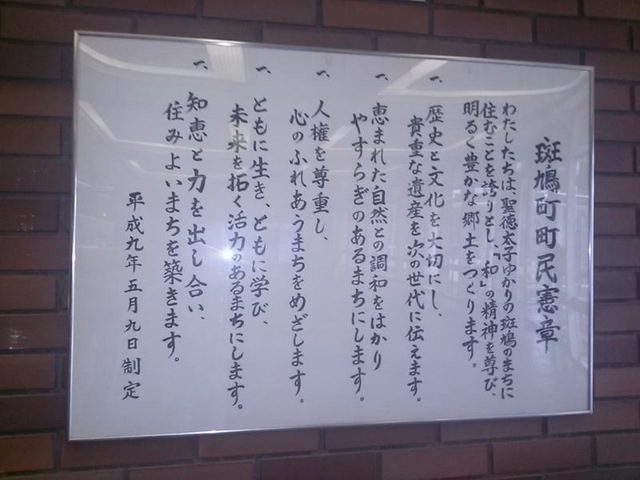 斑鳩町町民憲章
わたしたちは、聖徳太子ゆかりの斑鳩のまちに
住むことを誇りとし、「和」の精神を尊び、
明るく豊かな郷土をつくります。
一、歴史と文化を大切にし、
貴重な遺産を次の世代に伝えます。
一、恵まれた自然との調和をはかり
やすらぎのあるまちにします。
一、人権を尊重し、
心のふれあうまちをめざします。
一、ともに生き、ともに学び、
未来を拓く活力のあるまちにします。
一、知恵と力を出し合い、
住みよいまちを築きます。
平成九年五月九日制定